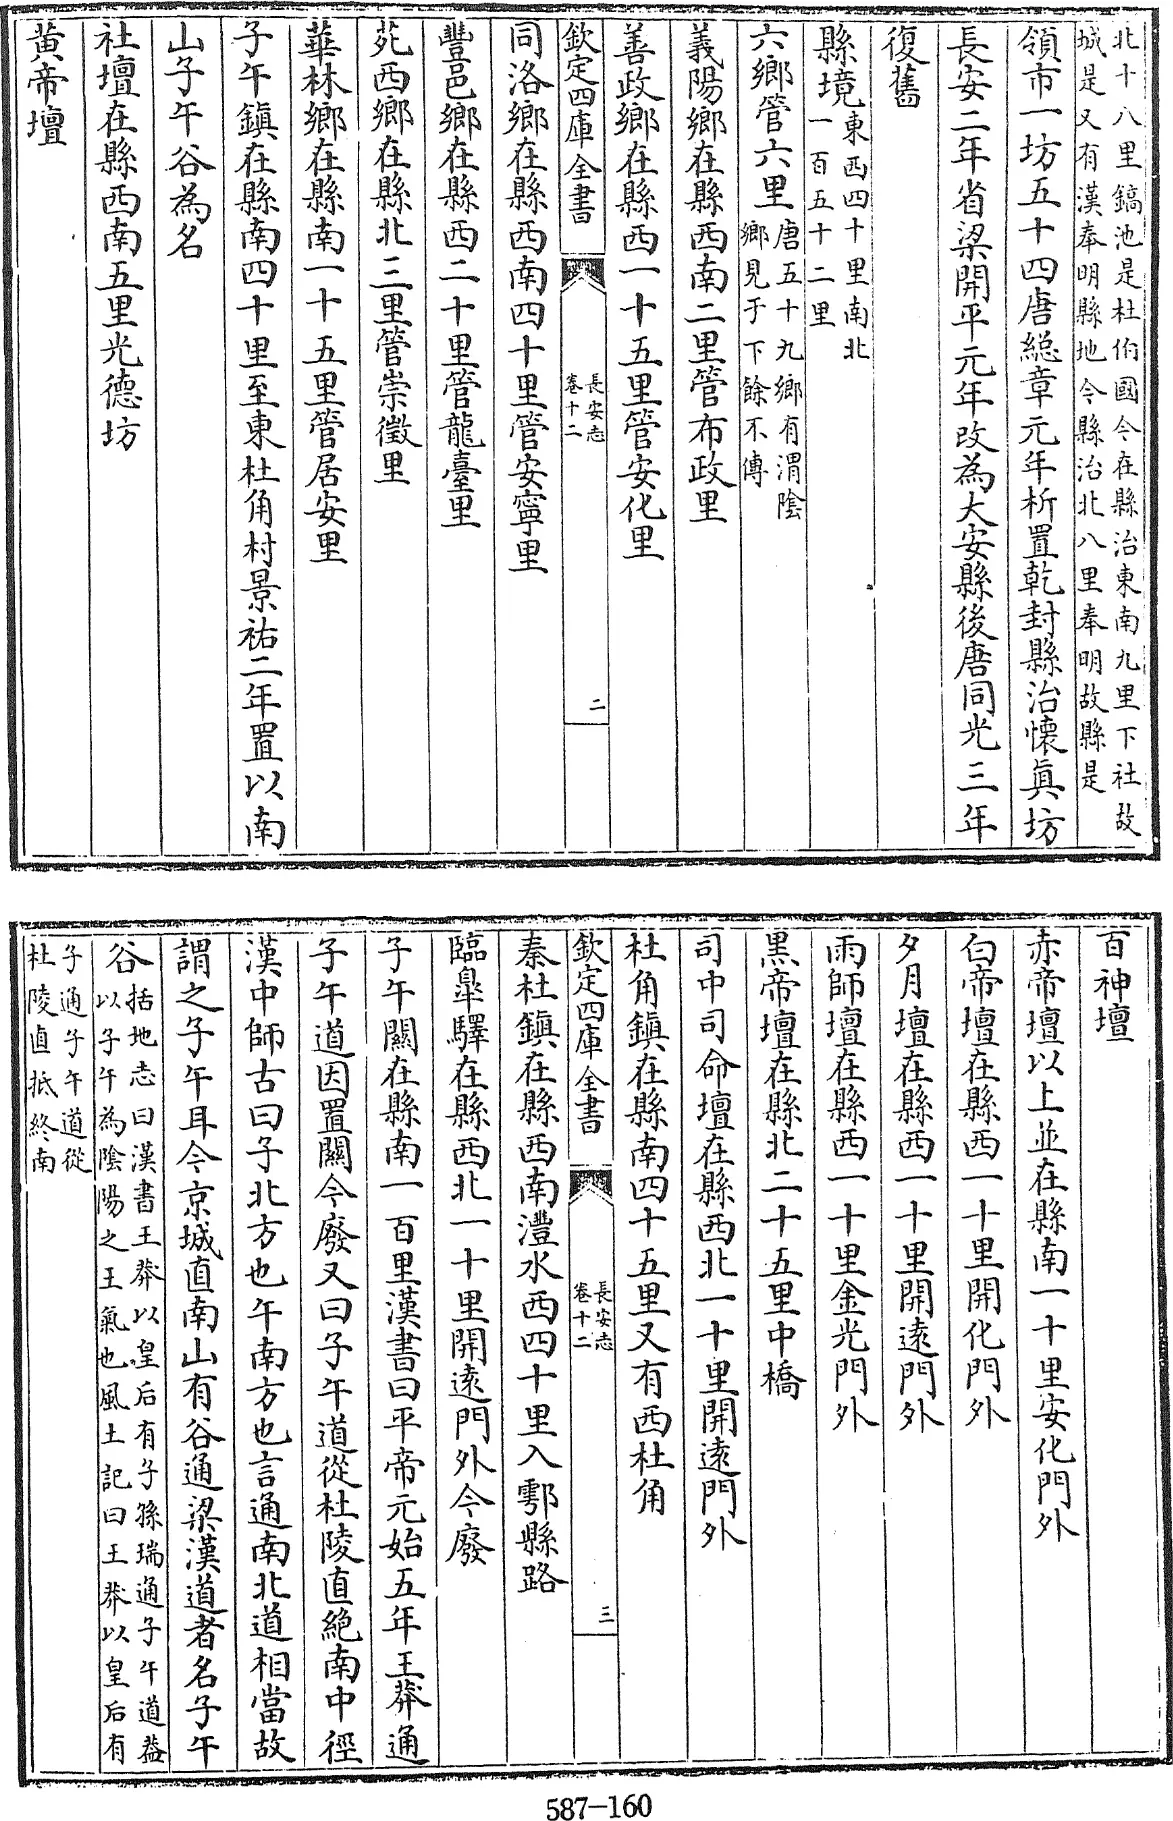 北十八里鎬池是杜伯國今在縣治東南九里下社故
城是又有漢奉明縣地今縣治北八里奉明故縣是
領市一坊五十四唐総章元年析置乾封縣治懷真坊
長安二年省梁開平元年改為大安縣後唐同光三年
復舊
縣境東西四十里南北
一百五十二里
六鄉管六里唐五十九鄉有渭陰
鄉見于下餘不傳
義陽鄉在縣西南二里管布政里
善政鄉在縣西一十五里管安化里
欽定四庫全書
長安志
卷十二
二
同洛鄉在縣西南四十里管安寧里
豐邑鄉在縣西二十里管龍臺里
苑西鄉在縣北三里管崇徵里
華林鄉在縣南一十五里管居安里
子午鎮在縣南四十里至東杜角村景祐二年置以南
山子午谷為名
社壇在縣西南五里光德坊
黃帝壇
百神壇
赤帝壇以上並在縣南一十里安化門外
白帝壇在縣西一十里開化門外
夕月壇在縣西一十里開遠門外
雨師壇在縣西一十里金光門外
黑帝壇在縣北二十五里中橋
司中司命壇在縣西北一十里開遠門外
杜角鎮在縣南四十五里又有西杜角
欽定四庫全書
長安志
卷十二
三
秦杜鎮在縣西南澧水西四十里入鄠縣路
臨臯驛在縣西北一十里開遠門外今廢
子午關在縣南一百里漢書曰平帝元始五年王莽通
子午道因置關今廢又曰子午道從杜陵直絕南中徑
漢中師古曰子北方也午南方也言通南北道相當故
謂之子午耳今京城直南山有谷通梁漢道者名子午
谷括地志曰漢書王莽以皇后有子孫瑞通子午道葢
以子午為陰陽之王氣也風土記曰王莽以皇后有
子通子午道從
杜陵直抵終南
587-160